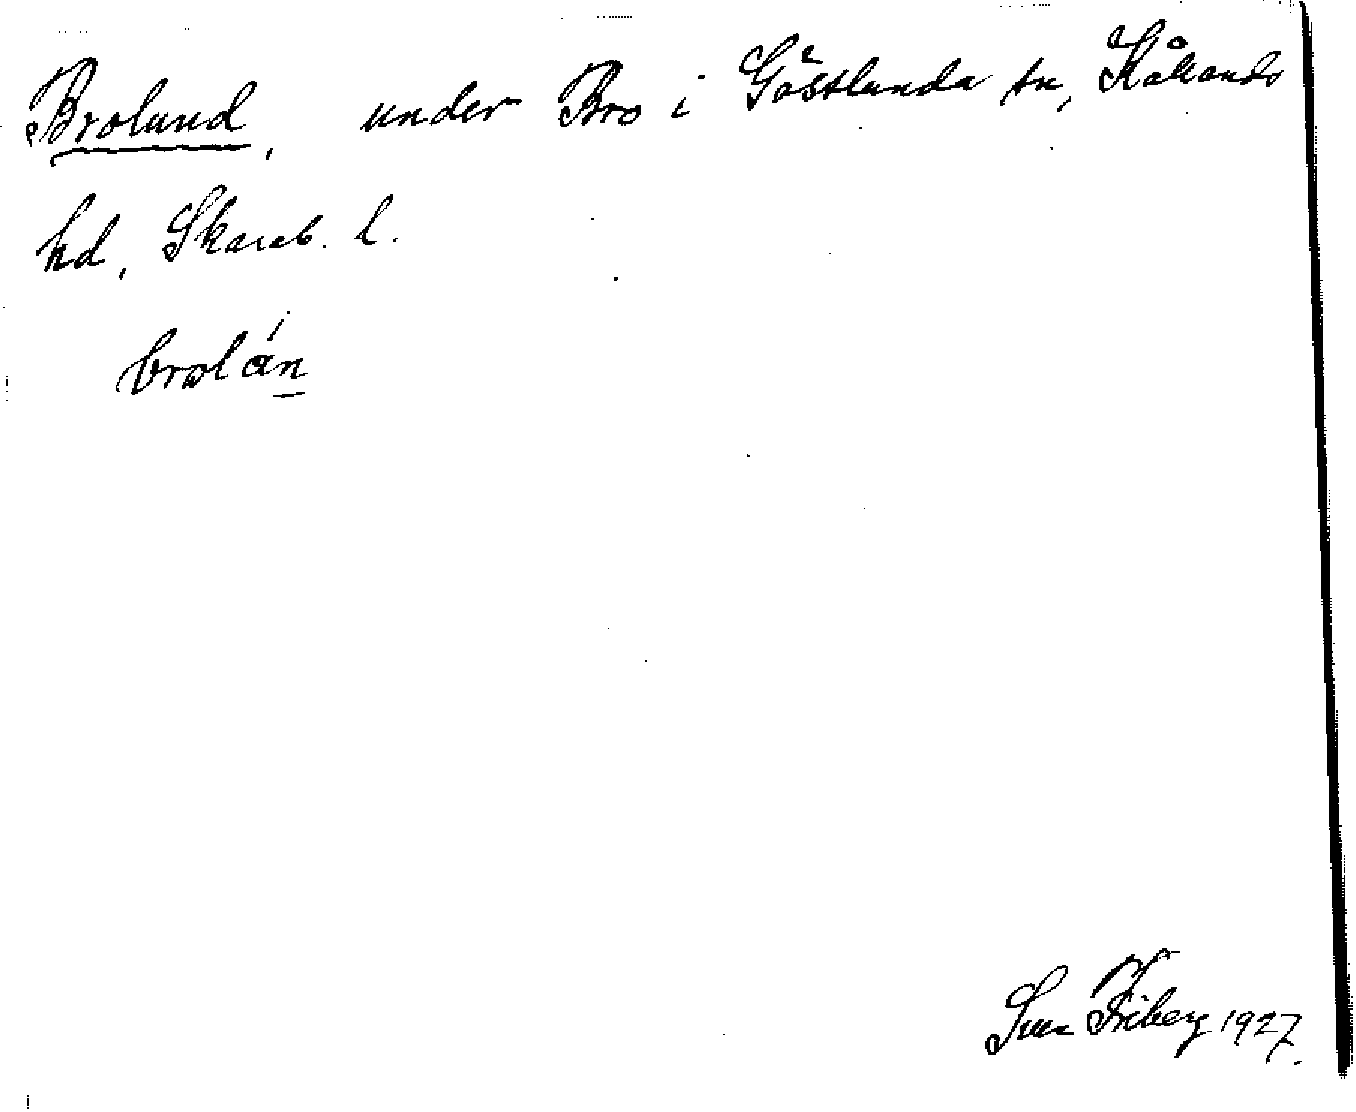 Brolund, under Bro i Gösslunda sn, Kållands
hd, Skarab. l.
brolán
Sven Friberg 1927.